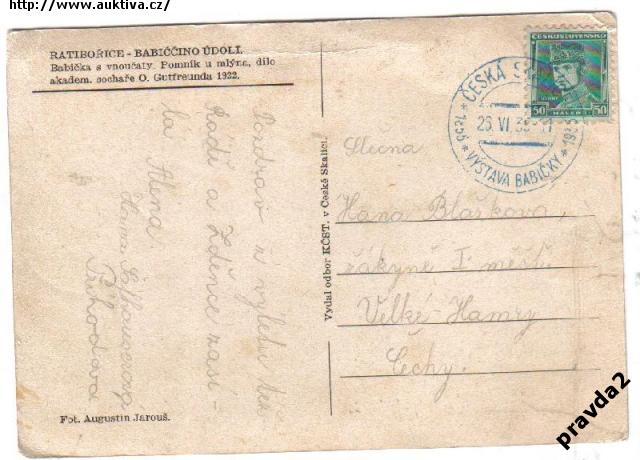 http://www.auktiva.cz/
RATIBOŘICE - BABIČČINO ÚDOLÍ.
Babička s vnoučaty. Pomník u mlýna, dílo
akadem. sochaře O. Gutfreunda 1922.
ČESKOSLOVENSKO
50 HALÉŘŮ 50
ČESKÁ
26. VI. 35
* 1855 * VÝSTAVA BABIČKY * 1935
Vydal odbor KČST. v České Skalici.
Slečna
Hana Blaškova,
žákyně I. měšť.
Velké-Hamry
Čechy.
Pozdrav z výletu
Radi a Zdence zasí-
lá Alena
Hana
Příhodova
Fot. Augustin Jarouš.
pravda2